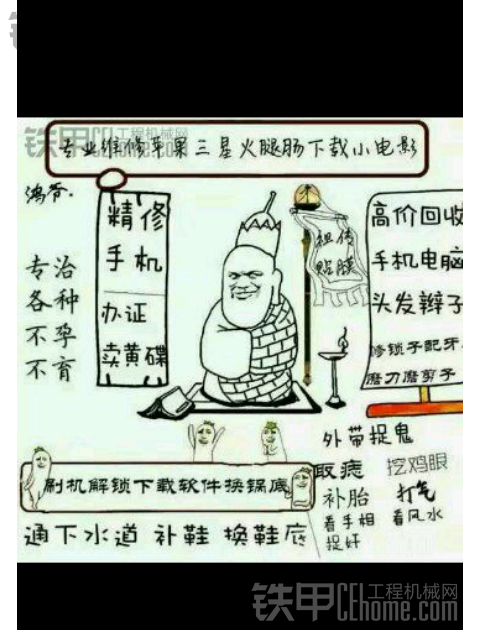 铁甲工程机械网
专业维修苹果三星火腿肠下载小电影
鸿爷.
精修
手机
办证
卖黄碟
祖传
贴膜
高价回收
手机电脑
头发辫子
修锁子配牙
磨刀磨剪子
专治
各种
不孕
不育
外带捉鬼
取痣
挖鸡眼
补胎
打气
看手相
看风水
捉奸
刷机解锁下载软件换锅底
通下水道 补鞋 换鞋底
铁甲工程机械网
CEhome.com